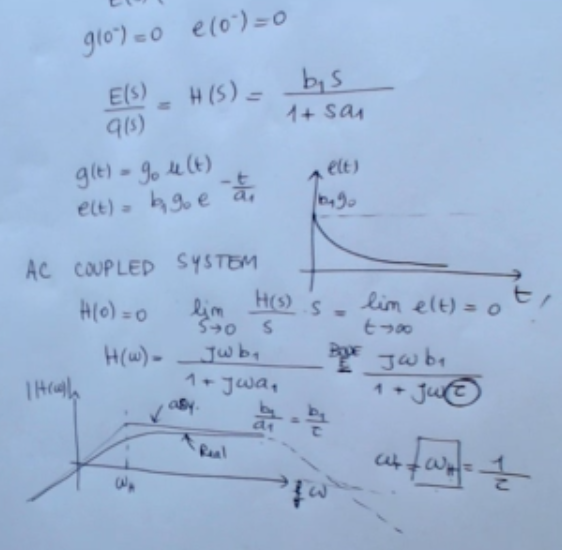 g(0⁻)=0 e(0⁻)=0
E(s)/G(s) = H(s) = b₁s / 1 + sa₁
g(t) = g₀ u(t)
e(t) = b₁g₀ e^(-t/a₁)
e(t)
b₁g₀
t
AC COUPLED SYSTEM
H(0)=0 lim s→0 H(s)/s · s = lim t→∞ e(t) = 0
H(ω) = jωb₁ / 1 + jωa₁ BODE = jωb₁ / 1 + jωτ
|H(ω)|
asy.
Real
b₁/a₁ = b₁/τ
ω_H
ω
ω_H = 1/τ